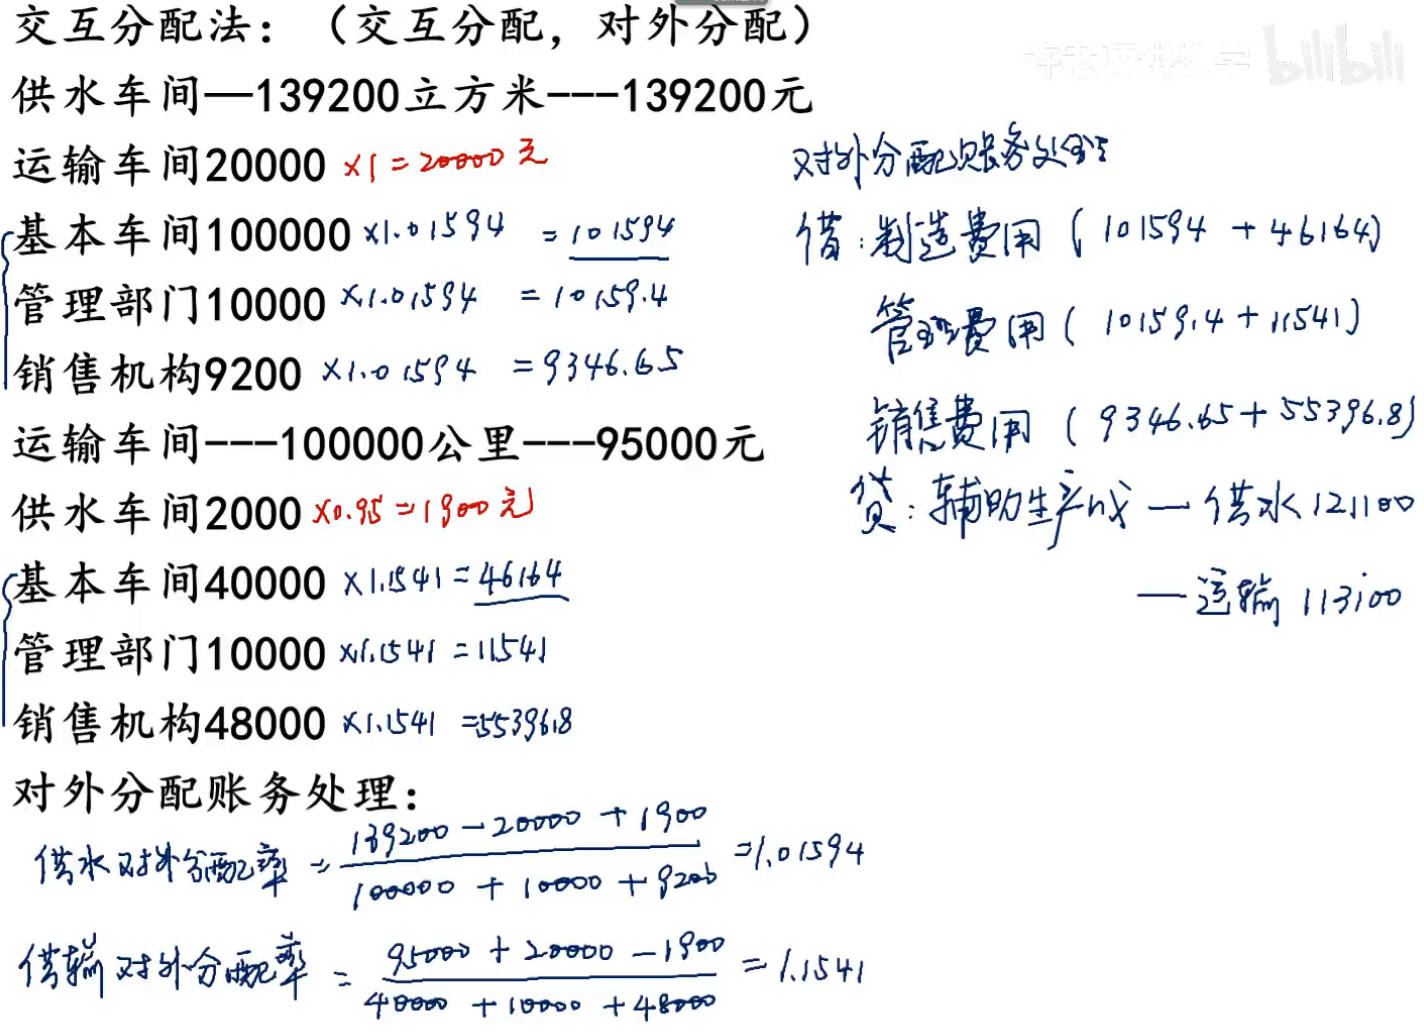 交互分配法：（交互分配，对外分配）
bilibili
供水车间—139200立方米---139200元
运输车间20000 ×1=20000元
基本车间100000 ×1.01594 =101594
管理部门10000 ×1.01594 =10159.4
销售机构9200 ×1.01594 =9346.65
运输车间---100000公里---95000元
供水车间2000 ×0.95=1900元
基本车间40000 ×1.1541=46164
管理部门10000 ×1.1541=11541
销售机构48000 ×1.1541 =55396.8
对外分配账务处理：
供水对外分配率 = 139200-20000+1900
100000+10000+9200 =1.01594
供输对外分配率 = 95000+20000-1900
40000+10000+48000 =1.1541
对外分配账务处理
借:制造费用(101594+46164)
管理费用(10159.4+11541)
销售费用(9346.65+55396.8)
贷:辅助生产成—供水121100
—运输 113100